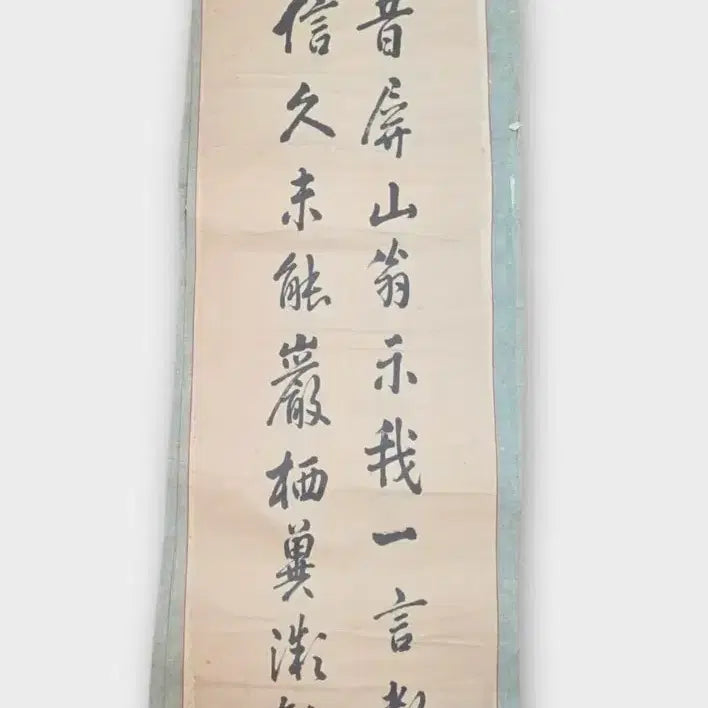 昔屏山翁示我一言教
信久未能巖栖冀微